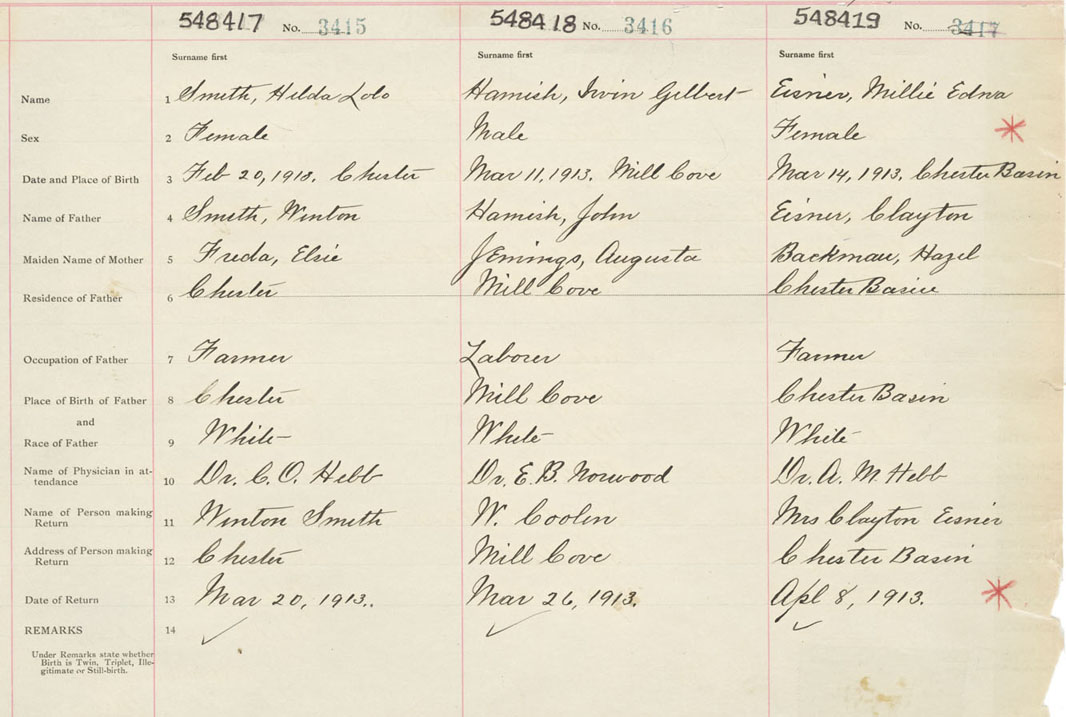 548417 No. 3415 548418 No. 3416 548419 No. 3417
Surname first Surname first Surname first
Name 1 Smith, Hilda Lolo Hamish, Irvin Gilbert Eisner, Millie Edna
Sex 2 Female Male Female *
Date and Place of Birth 3 Feb 20, 1913. Chester Mar 11, 1913. Mill Cove Mar 14, 1913. Chester Basin
Name of Father 4 Smith, Winton Hamish, John Eisner, Clayton
Maiden Name of Mother 5 Freda, Elsie Jennings, Augusta Backman, Hazel
Residence of Father 6 Chester Mill Cove Chester Basin
Occupation of Father 7 Farmer Laborer Farmer
Place of Birth of Father 8 Chester Mill Cove Chester Basin
and
Race of Father 9 White White White
Name of Physician in at-
tendance 10 Dr. C. O. Hebb Dr. E. B. Norwood Dr. A. M. Hebb
Name of Person making
Return 11 Winton Smith W. Coolen Mrs Clayton Eisner
Address of Person making
Return 12 Chester Mill Cove Chester Basin
Date of Return 13 Mar 20, 1913.. Mar 26, 1913. Apl 8, 1913. *
REMARKS 14 ✓ ✓ ✓
Under Remarks state whether
Birth is Twin, Triplet, Ille-
gitimate or Still-birth.